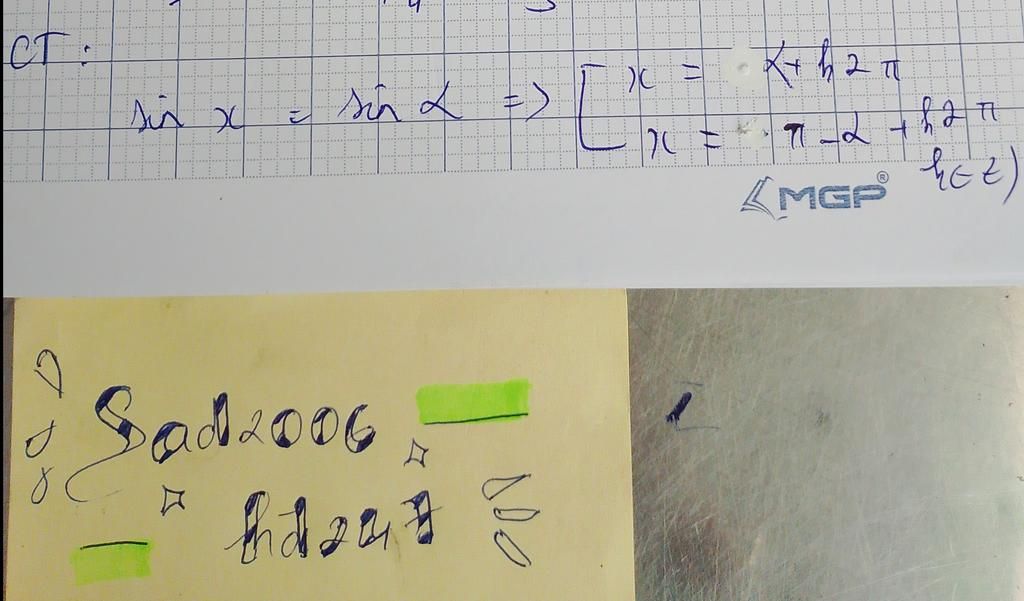 CT:
sin x = sin α => [ x = α + k2π
x = π - α + k2π
k ∈ Z)
MGP®
Sad2006
hd247